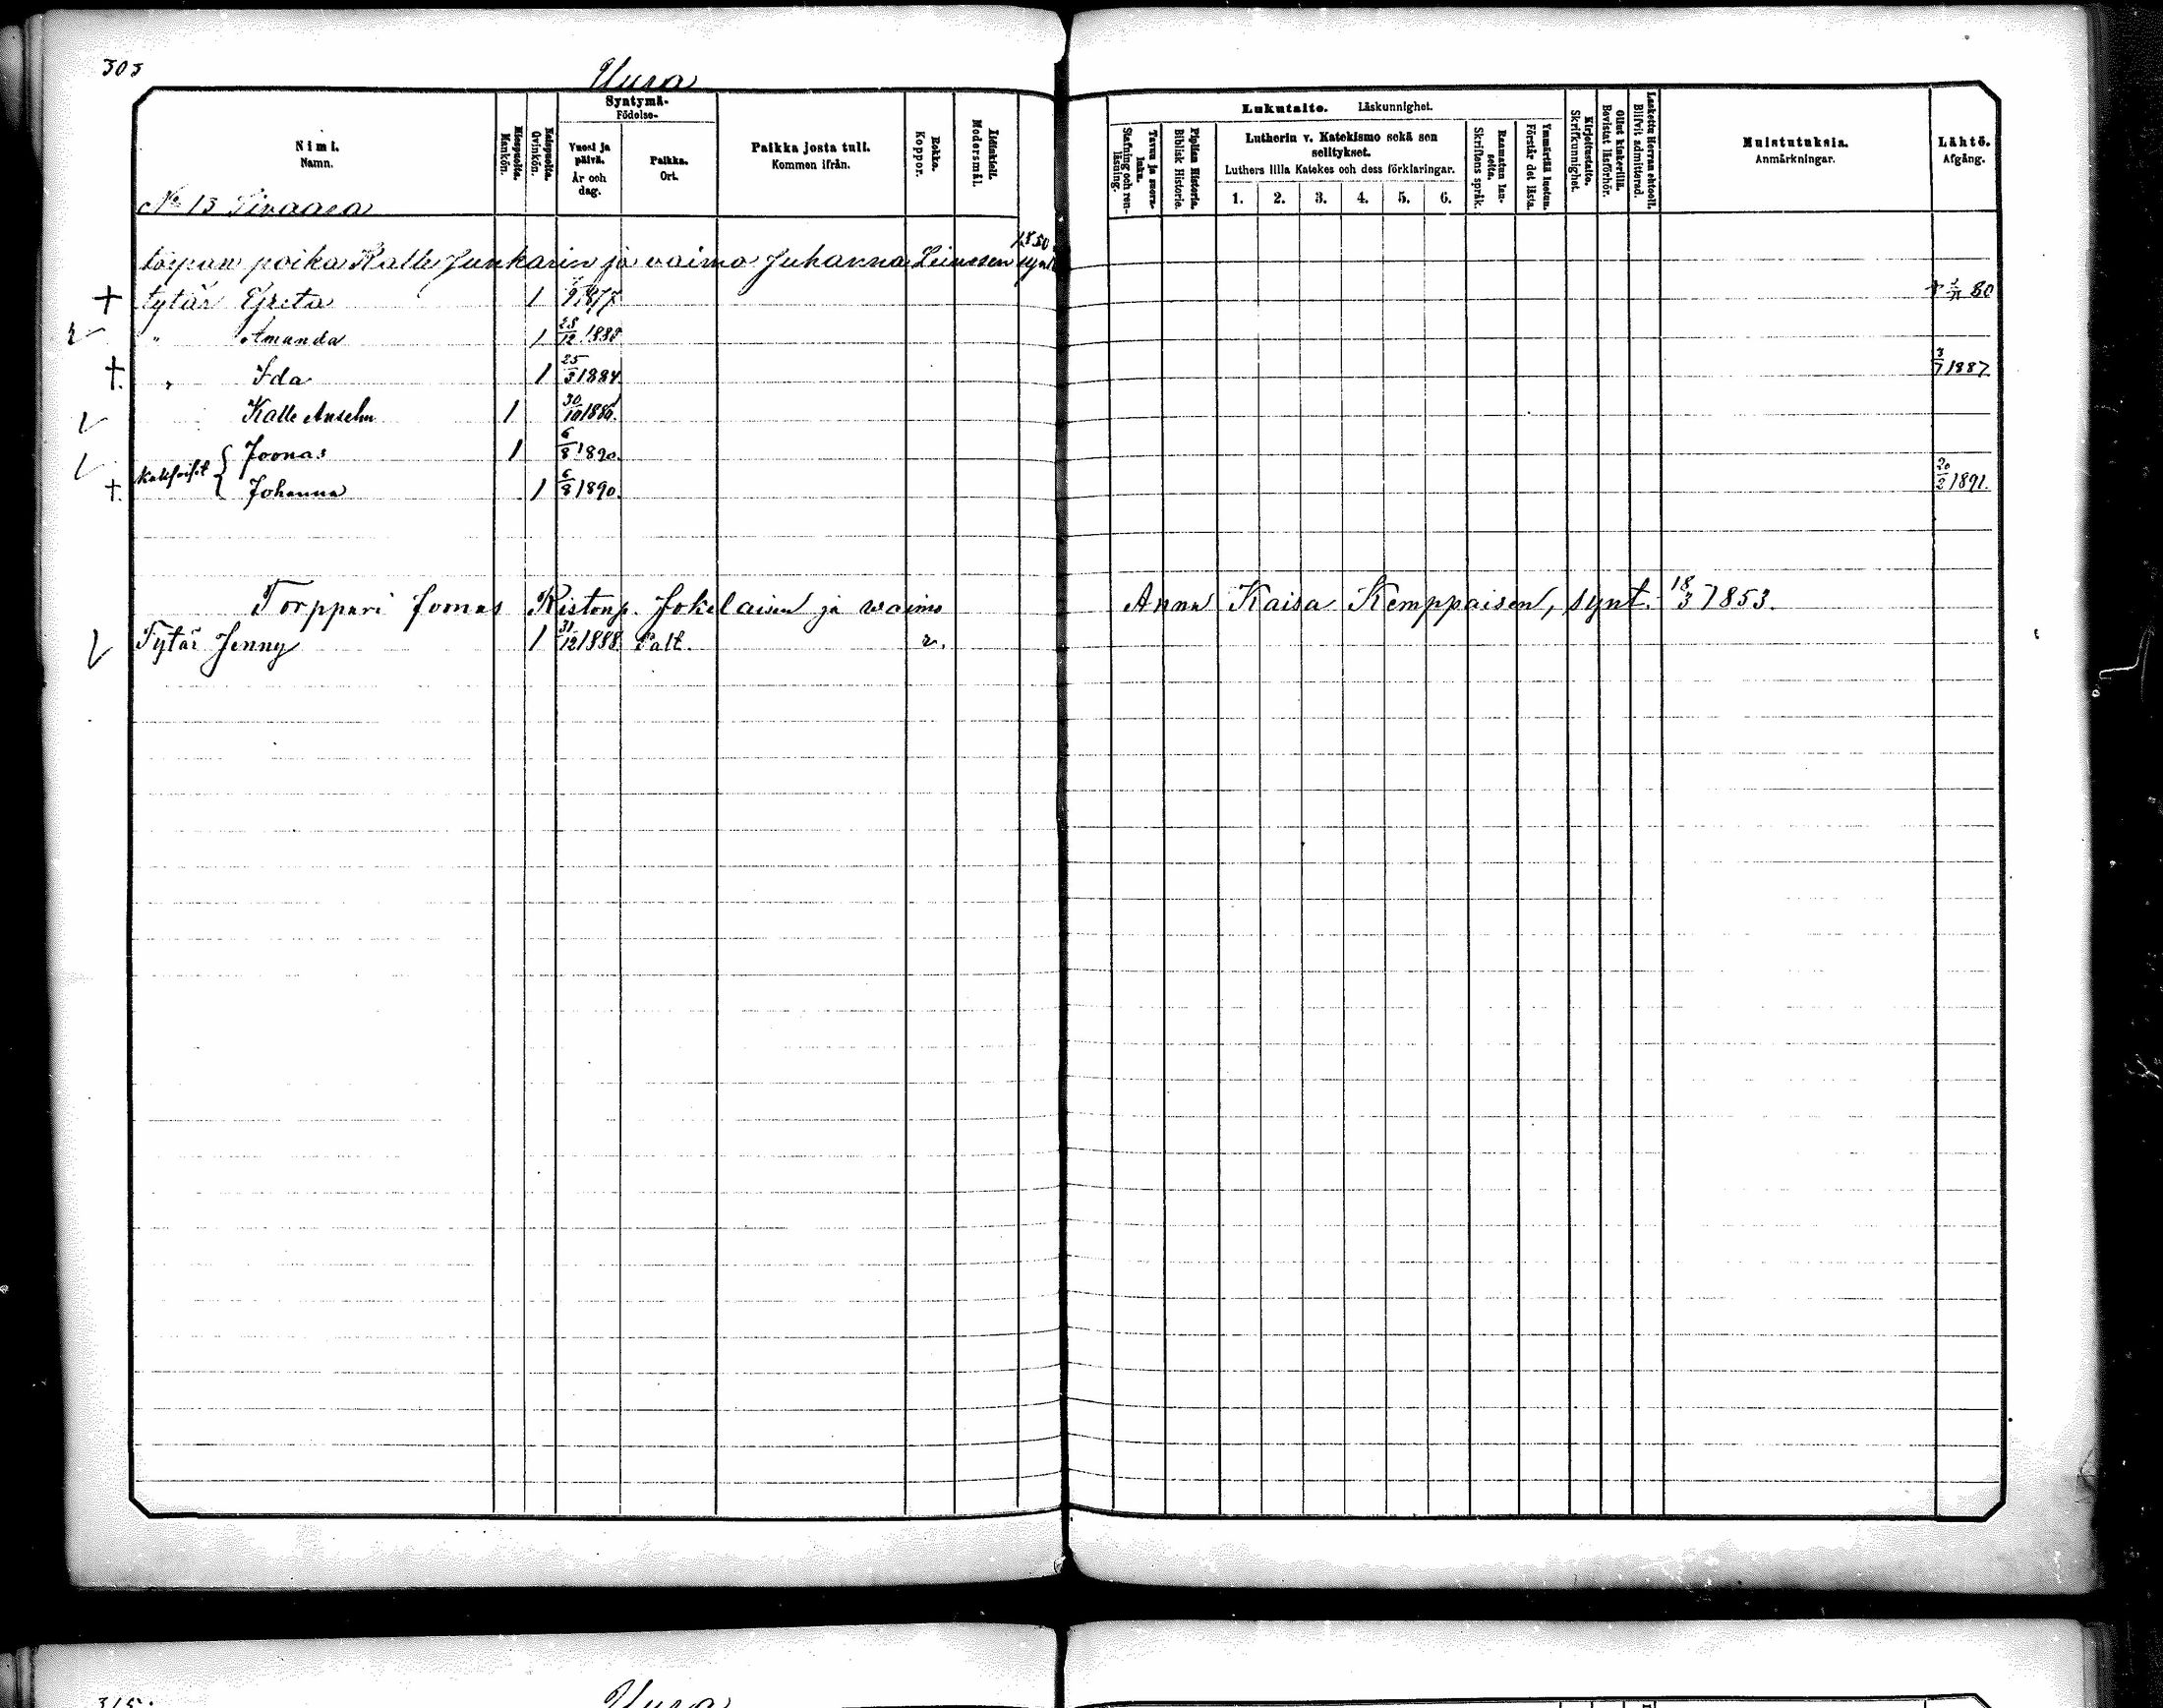 303
Uura
Nimi.
Namn.
Miespuolia.
Mankön.
Naispuolia.
Qvinkön.
Syntymä-
Födelse-
Vuosi ja päivä.
År och dag.
Paikka.
Ort.
Paikka josta tuli.
Kommen ifrån.
Rokko.
Koppor.
Äidinkieli.
Modersmål.
Tavuu ja suora-luku.
Stafning och ren-läsning.
Piplian Historia.
Biblisk Historie.
Lukutaito. Läskunnighet.
Lutherin v. Katekismo sekä sen
selitykset.
Luthers lilla Katekes och dess förklaringar.
1. 2. 3. 4. 5. 6.
Raamatun lau-seita.
Skriftens språk.
Ymmärtää luetun.
Förstår det lästa.
Kirjoitustaito.
Skrifkunnighet.
Ollut kinkerillä.
Bevistat läsförhör.
Laskettu Herran ehtooll.
Blifvit admitterad.
Muistutuksia.
Anmärkningar.
Lähtö.
Afgång.
No 13
poika Kalle Junkarin ja vaimo Juhanna Leinosen 1850 synt
+ tytär Greta 1 1877 80
" Amanda 1 28/12 1888
+ " Ida 1 25/3 1884 3/7 1887
Kalle Anselm 1 30/10
Joonas 1 6/8 1890.
+ Johanna 1 6/8 1890. 20/2 1891.
Torppari Joonas Ristonp. Jokelaisen ja waimo Anna Kaisa Kemppaisen, synt. 18/3 1853.
Tytär Jenny 1 31/12 1888. Palt. r.
Uura